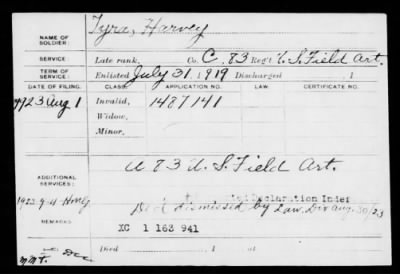 NAME OF SOLDIER: Tyra, Harvey
SERVICE Late rank, Co. C. 83 Reg't U. S. Field Art.
TERM OF SERVICE Enlisted July 31, 1919 Discharged , 1
DATE OF FILING. CLASS. APPLICATION NO. LAW. CERTIFICATE NO.
1923 Aug 1 Invalid, 1487141
Widow,
Minor,
ADDITIONAL SERVICES: 83 U. S. Field Art.
Declaration Index
REMARKS dismissed by Law Div Aug. 30/23
XC 1 163 941
Died , 1 at